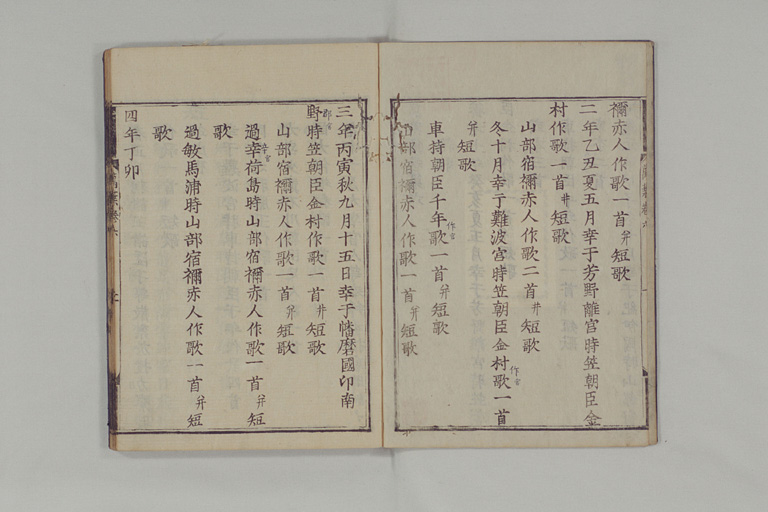 禰赤人作歌一首并短歌
二年乙丑夏五月幸于芳野離宮時笠朝臣金
村作歌一首并短歌
山部宿禰赤人作歌二首并短歌
冬十月幸于難波宮時笠朝臣金村歌一首
并短歌
車持朝臣千年歌一首并短歌
山部宿禰赤人作歌一首并短歌
三年丙寅秋九月十五日幸于幡磨國印南
野時笠朝臣金村作歌一首并短歌
山部宿禰赤人作歌一首并短歌
過幸荷島時山部宿禰赤人作歌一首并短
歌
過敏馬浦時山部宿禰赤人作歌一首并短
歌
四年丁卯